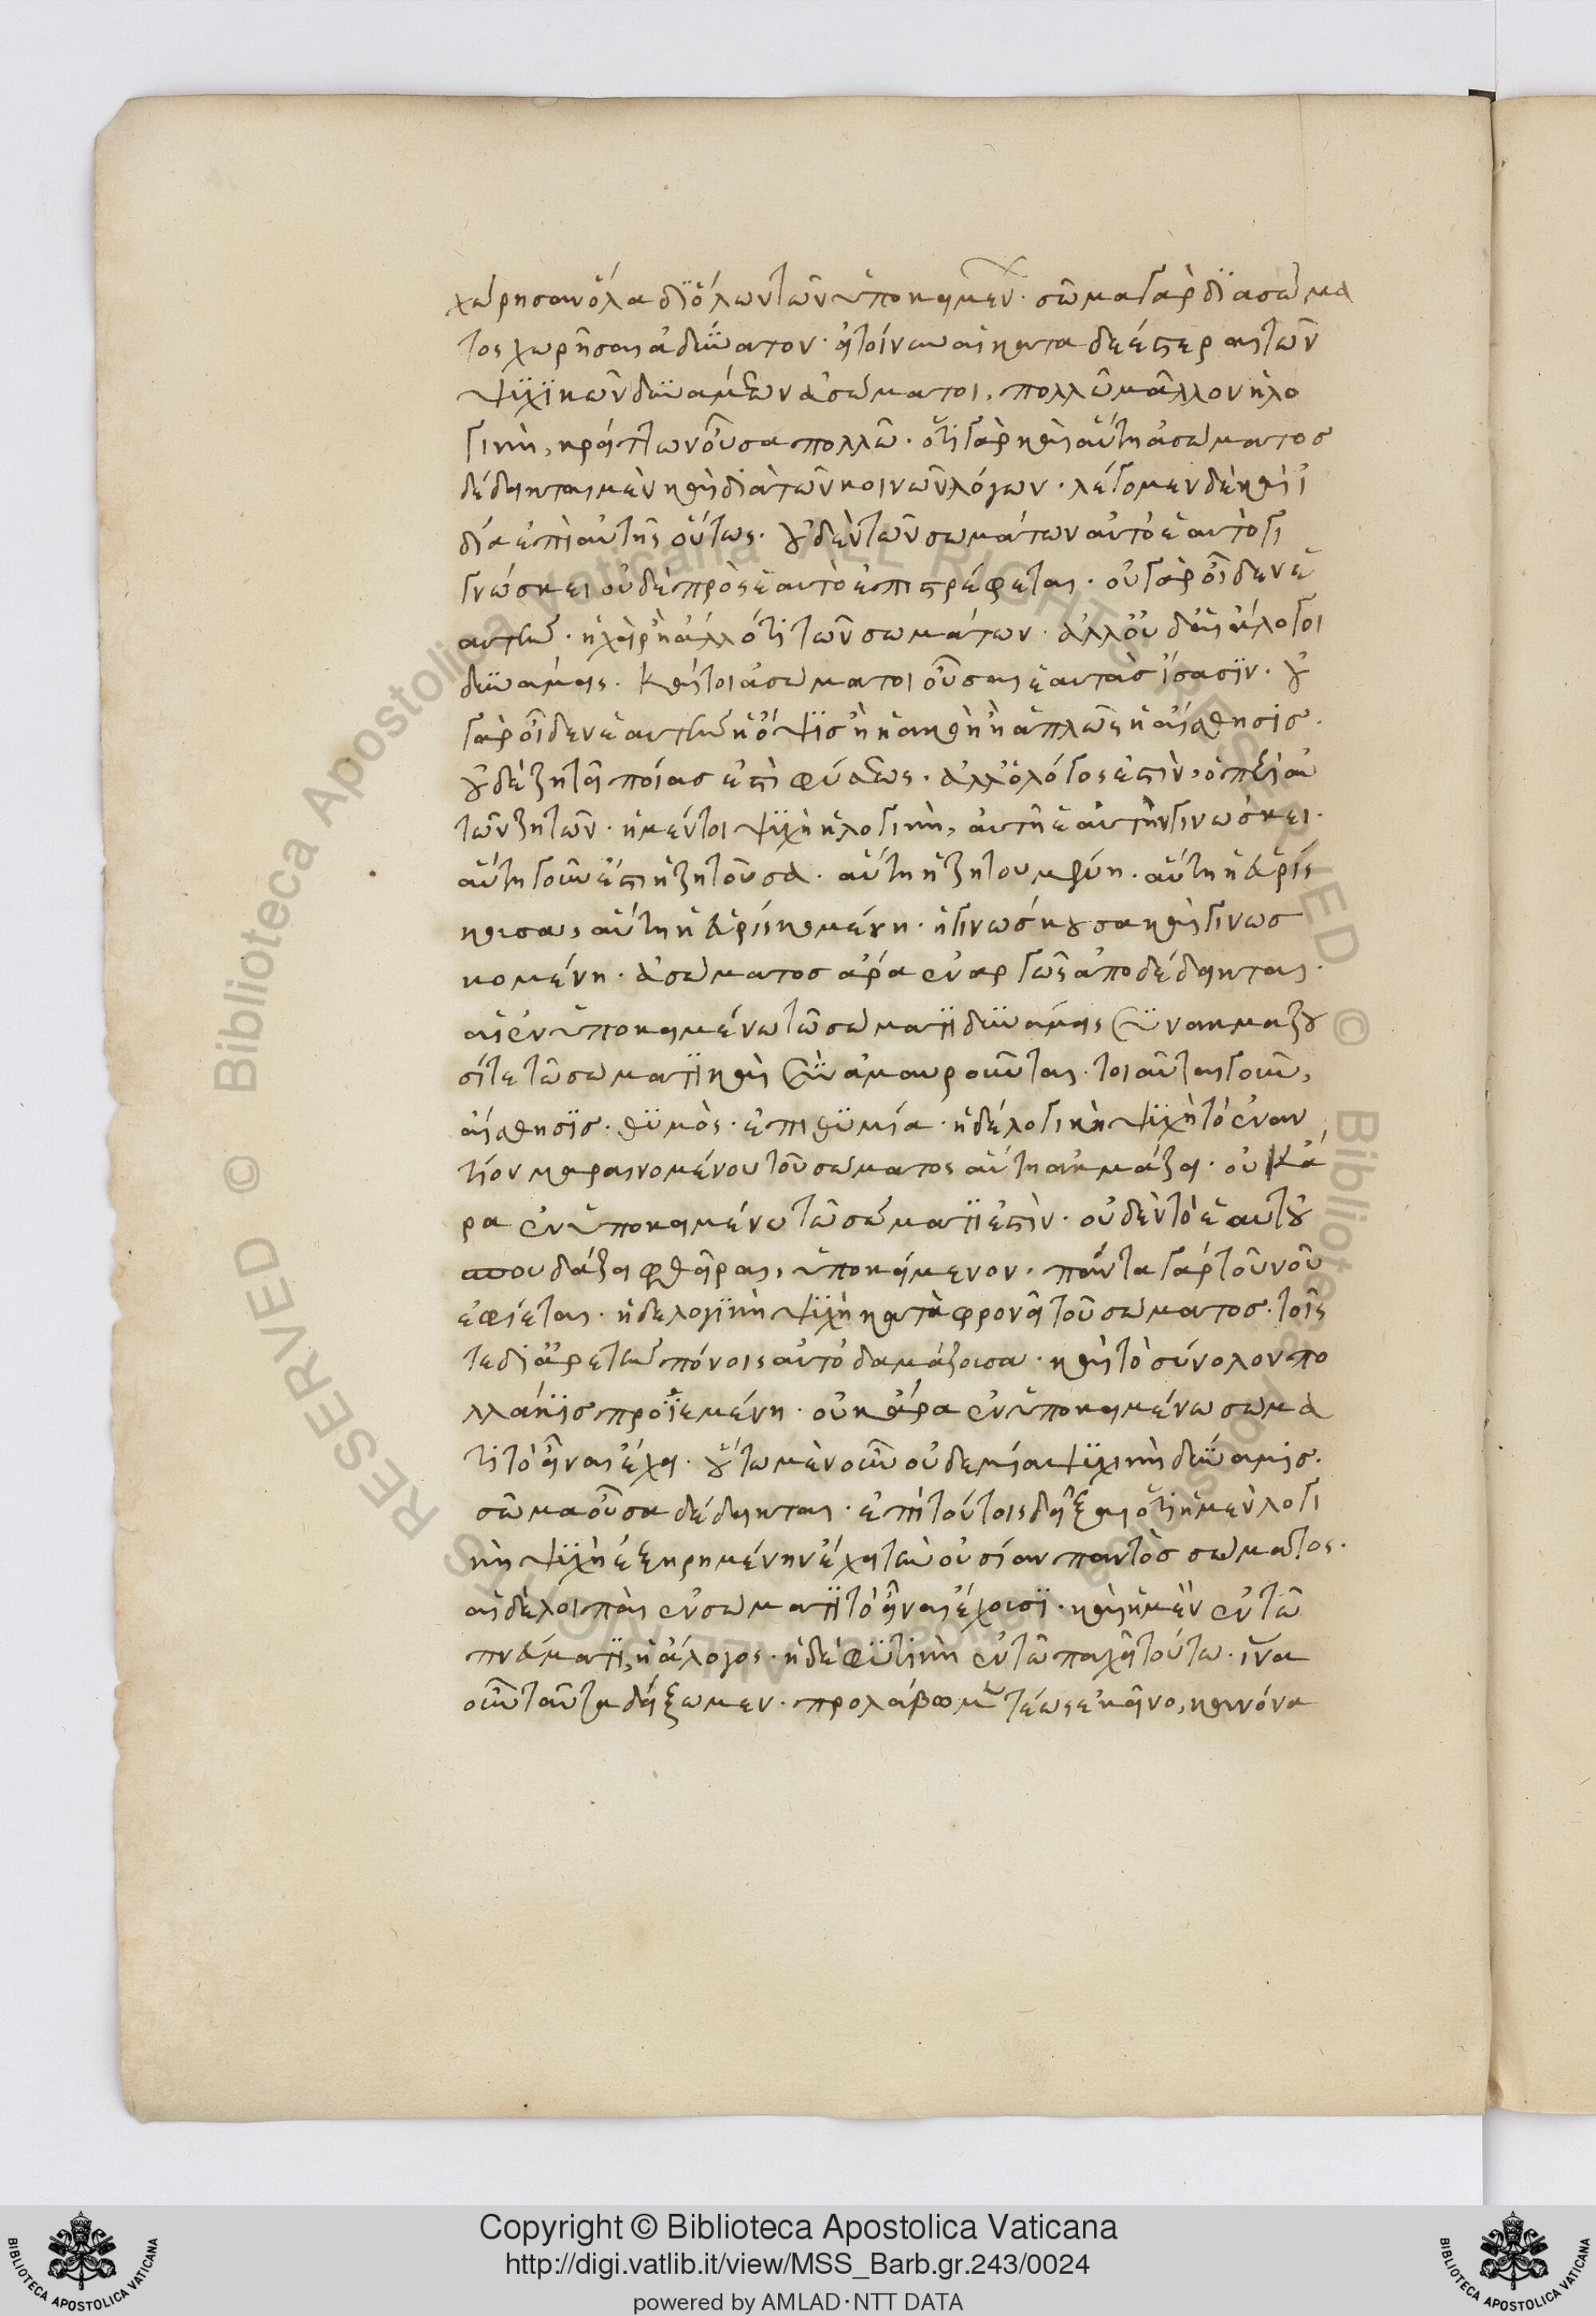 χώρησαν ὅλα δι' ὅλων τῶν ὑποκειμέν. σῶμα γὰρ διὰ σώμα
τος χωρῆσαι ἀδύνατον. εἰ τοίνυν αἱ καταδεέστεραι τῶν
ψυχικῶν δυνάμεων ἀσώματοι, πολλῷ μᾶλλον ἡ λο
γικὴ, κρείττων οὖσα πολλῶ. ὅτι γὰρ καὶ αὕτη ἀσώματος
δέδεικται μὲν καὶ διὰ τῶν κοινῶν λόγων. λέγομεν δὲ καὶ ἰ
δία ἐπὶ αὐτῆς οὕτως. οὐδὲν τῶν σωμάτων αὐτὸ ἑαυτὸ γι
γνώσκει οὐδὲ πρὸς ἑαυτὸ ἐπιστρέφεται. οὐ γὰρ οἶδεν ἑ
αυτὴν. ἡ χεὶρ ἢ ἄλλό τι τῶν σωμάτων. ἀλλ' οὐδ' αἱ ἄλογοι
δυνάμεις. καίτοι ἀσώματοι οὖσαι ἑαυτὰς ἴσασιν. οὐ
γὰρ οἶδεν ἑαυτὴν ἡ ὄψις ἢ ἡ ἀκοὴ ἢ ἁπλῶς ἡ αἴσθησις.
οὐδὲ ζητεῖ ποίας ἐστὶ φύσεως. ἀλλ' ὁ λόγος ἐστὶν, ὁ περὶ αὐ
τῶν ζητῶν. ἡ μέντοι ψυχὴ ἡ λογικὴ, αὐτὴ ἑαυτὴν γινώσκει.
αὕτη γοῦν ἐστι ἡ ζητοῦσα. αὕτη ἡ ζητουμένη. αὕτη ἡ εὑρίς
κουσα, αὕτη ἡ εὑρισκομένη. ἡ γινώσκουσα καὶ γινωσ
κομένη. ἀσώματος ἄρα ἐναργῶς ἀποδέδεικται.
αἱ ἐν ὑποκειμένω τῶ σώματι δυνάμεις συνακμάζου
σί τε τῶ σώματι καὶ συναμαυροῦνται. τοιαῦται γοῦν,
αἴσθησις. θυμὸς. ἐπιθυμία. ἡ δέ λογικὴ ψυχὴ τὸ ἐναν
τίον μαραινομένου τοῦ σώματος αὕτη ἀκμάζει. οὐκ ἄ
ρα ἐν ὑποκειμένω τῶ σώματι ἐστὶν. οὐδὲν τὸ ἑαυτοῦ
σπουδάζει φθεῖραι, ὑποκείμενον. πάντα γάρ τοῦ νοῦ
ἐφίεται. ἡ δε λογικὴ ψυχὴ καταφρονεῖ τοῦ σώματος. τοῖς
τε δι' ἀρετὴν πόνοις αὐτὸ δαμάζουσα. καὶ τὸ σύνολον πο
λλάκις προϊεμένη. οὐκ ἄρα ἐν ὑποκειμένω σώμα
τι τὸ εἶναι ἔχει. οὕτω μὲν οὖν οὐδεμία ψυχικὴ δύναμις.
σῶμα οὖσα δέδεικται. ἐπὶ τούτοις δεῖξαι ὅτι ἡ μὲν λογι
κὴ ψυχὴ ἐξῃρημένην ἔχει τὴν οὐσίαν παντὸς σώματος.
αἱ δὲ λοιπαὶ ἐν σώματι τὸ εἶναι ἔχουσι. καὶ ἡ μὲν ἐν τῶ
πνεύματι, ἡ ἄλογος. ἡ δὲ φυτικὴ ἐν τῶ παχεῖ τούτω. ἵνα
οὖν ταῦτα δείξωμεν. προλάβωμεν τέως ἐκεῖνο, κανόνα